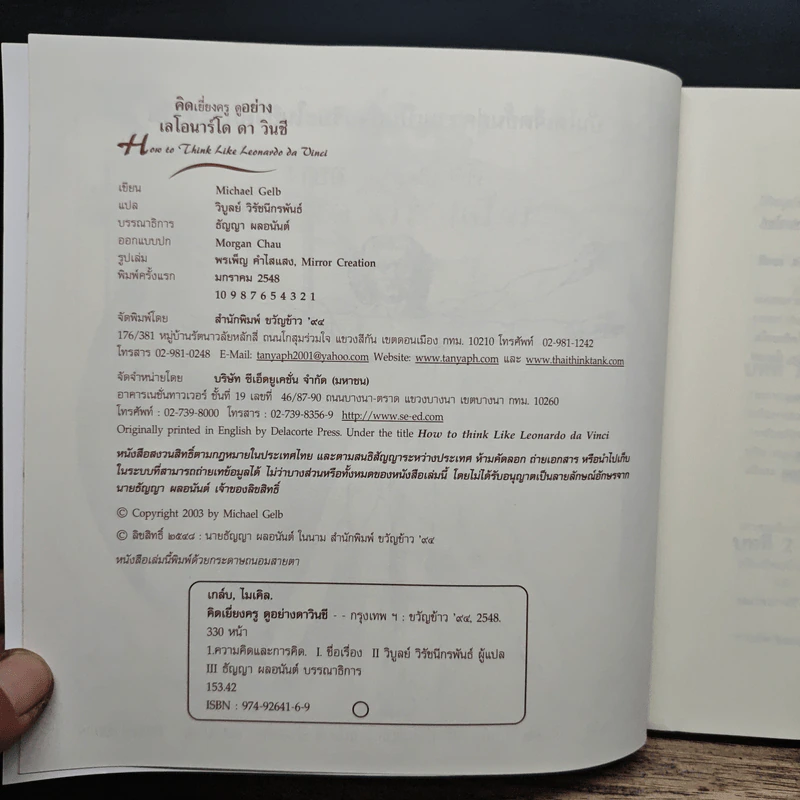 คิดเยี่ยงครู ดูอย่าง
เลโอนาร์โด ดา วินชี
How to Think Like Leonardo da Vinci
เขียน Michael Gelb
แปล วิบูลย์ วิรัชนีกรพันธ์
บรรณาธิการ ธัญญา ผลอนันต์
ออกแบบปก Morgan Chau
รูปเล่ม พรเพ็ญ คำไสแสง, Mirror Creation
พิมพ์ครั้งแรก มกราคม 2548
10 9 8 7 6 5 4 3 2 1
จัดพิมพ์โดย สำนักพิมพ์ ขวัญข้าว '๙๔
176/381 หมู่บ้านรัตนาวลัยหลักสี่ ถนนโกสุมร่วมใจ แขวงสีกัน เขตดอนเมือง กทม. 10210 โทรศัพท์ 02-981-1242
โทรสาร 02-981-0248 E-Mail: tanyaph2001@yahoo.com Website: www.tanyaph.com และ www.thaithinktank.com
จัดจำหน่ายโดย บริษัท ซีเอ็ดยูเคชั่น จำกัด (มหาชน)
อาคารเนชั่นทาวเวอร์ ชั้นที่ 19 เลขที่ 46/87-90 ถนนบางนา-ตราด แขวงบางนา เขตบางนา กทม. 10260
โทรศัพท์ : 02-739-8000 โทรสาร : 02-739-8356-9 http://www.se-ed.com
Originally printed in English by Delacorte Press. Under the title How to think Like Leonardo da Vinci
หนังสือสงวนสิทธิ์ตามกฎหมายในประเทศไทย และตามสนธิสัญญาระหว่างประเทศ ห้ามคัดลอก ถ่ายเอกสาร หรือนำไปเก็บ
ในระบบที่สามารถถ่ายเทข้อมูลได้ ไม่ว่าบางส่วนหรือทั้งหมดของหนังสือเล่มนี้ โดยไม่ได้รับอนุญาตเป็นลายลักษณ์อักษรจาก
นายธัญญา ผลอนันต์ เจ้าของลิขสิทธิ์
© Copyright 2003 by Michael Gelb
© ลิขสิทธิ์ ๒๕๔๘ : นายธัญญา ผลอนันต์ ในนาม สำนักพิมพ์ ขวัญข้าว '๙๔
หนังสือเล่มนี้พิมพ์ด้วยกระดาษถนอมสายตา
เกล็บ, ไมเคิล.
คิดเยี่ยงครู ดูอย่างดาวินชี - - กรุงเทพ ฯ : ขวัญข้าว '๙๔, 2548.
330 หน้า
1.ความคิดและการคิด. I. ชื่อเรื่อง II วิบูลย์ วิรัชนีกรพันธ์ ผู้แปล
III ธัญญา ผลอนันต์ บรรณาธิการ
153.42
ISBN : 974-92641-6-9